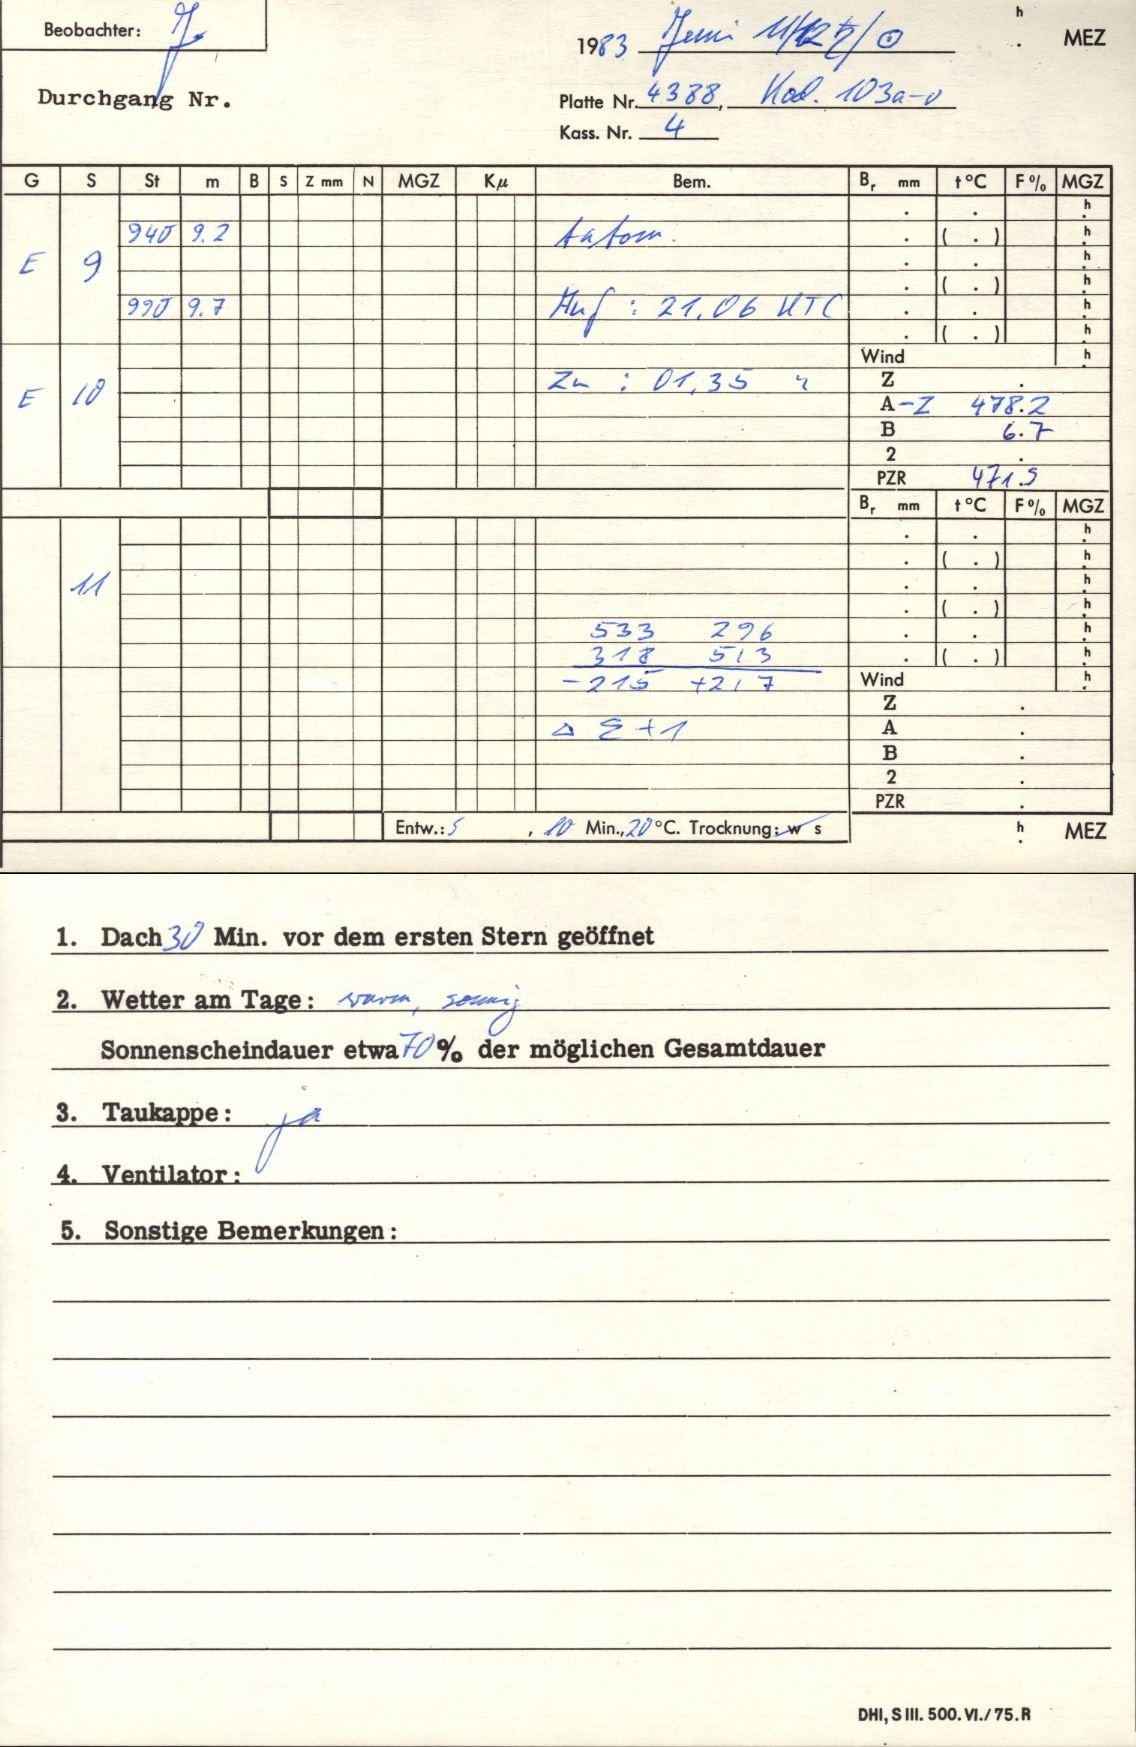 Beobachter:
1983 Juni 11/12 ♄/☉ h . MEZ
Durchgang Nr.
Platte Nr. 4388, Kod. 103a-0
Kass. Nr. 4
G S St m B S Z mm N MGZ Kμ Bem. Br mm t °C F % MGZ
. . h
940 9.2 autom. . ( . ) h
E 9 . . h
. ( . ) h
990 9.7 Auf : 21.06 UTC . . h
. ( . ) h
Wind h
E 10 Zu : 01.35 " Z .
A-Z 478.2
B 6.7
2 .
PZR 471.5
Br mm t °C F % MGZ
. . h
. ( . ) h
11 . . h
. ( . ) h
533 296 . . h
318 513 . ( . ) h
-215 +217 Wind h
Z .
Δ Σ +1 A .
B .
2 .
PZR .
Entw.: 5 , 10 Min., 20 °C. Trocknung: w s h . MEZ
1. Dach 30 Min. vor dem ersten Stern geöffnet
2. Wetter am Tage: warm, sonnig
Sonnenscheindauer etwa 70 % der möglichen Gesamtdauer
3. Taukappe: ja
4. Ventilator:
5. Sonstige Bemerkungen:
DHI, S III. 500. VI./75. R